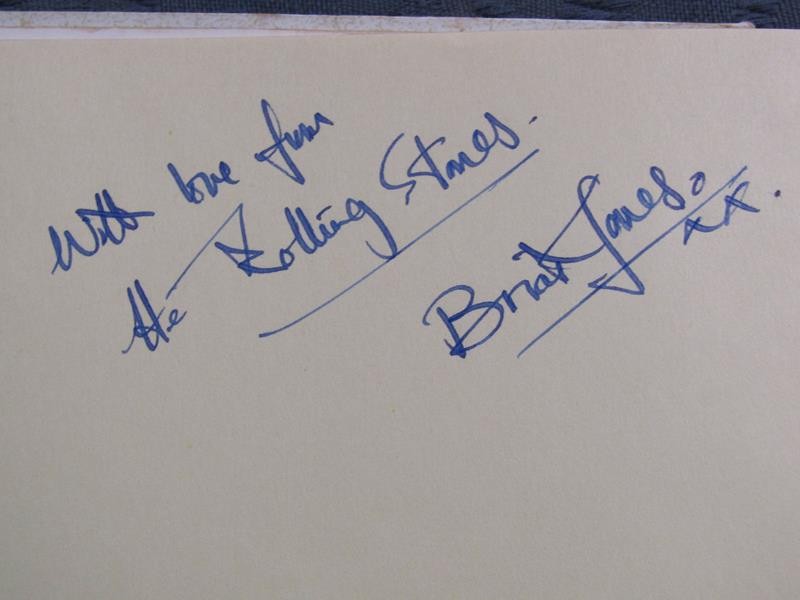 With love from
the Rolling Stones.
Brian Jones.
xx.